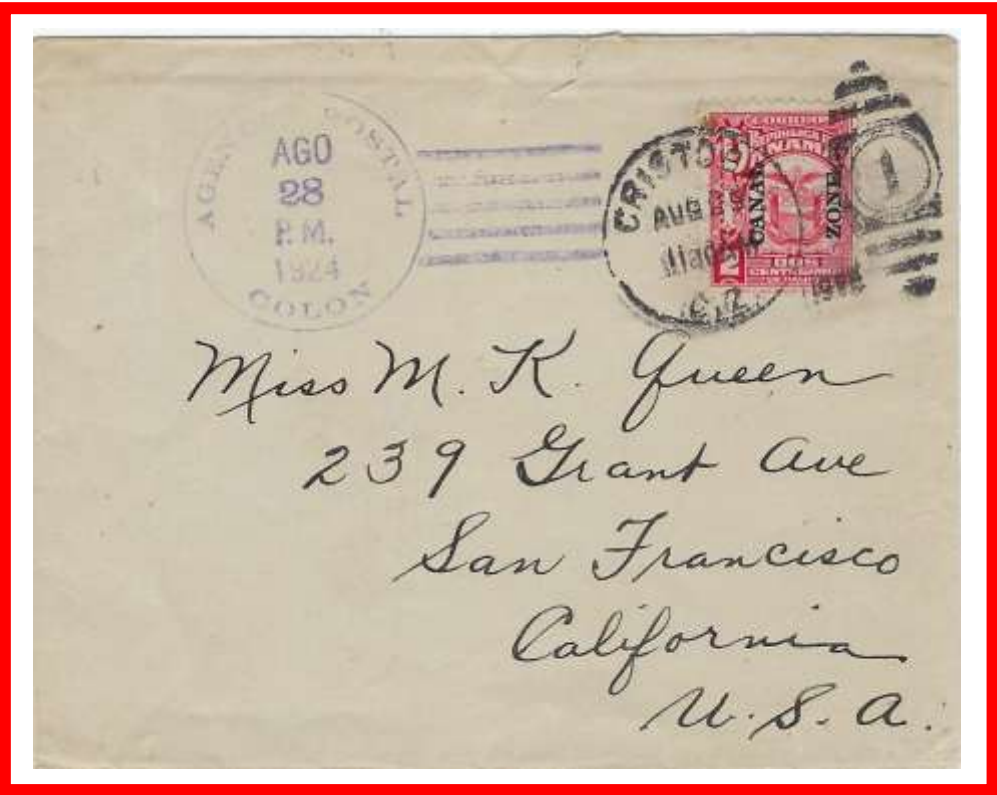 AGENCIA POSTAL
AGO
28
P.M.
1924
COLON
CRISTOB
AUG
C.Z.
CORREOS
REPUBLICA
PANAMA
CANAL
ZONE
DOS
2
1
Miss M. K. Queen
239 Grant Ave
San Francisco
California
U.S.A.